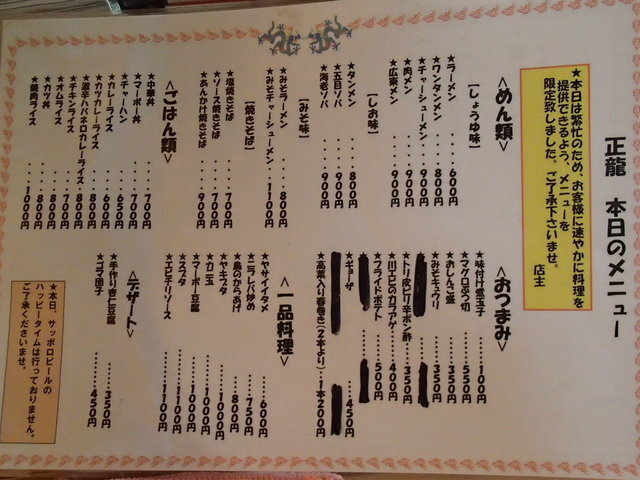 正龍 本日のメニュー
★本日は繁忙のため、お客様に速やかに料理を
提供できるよう、メニューを
限定致しました。ご了承下さいませ。
店主
<めん類>
[しょうゆ味]
★ラーメン ････600円
★ワンタンメン ････800円
★チャーシューメン ････900円
★肉メン ････900円
★広東メン ････900円
[しお味]
★タンメン ････800円
★五目ソバ ････900円
★海老ソバ ････900円
[みそ味]
★みそラーメン ････800円
★みそチャーシューメン ･･1100円
[焼きそば]
★塩焼きそば ････700円
★ソース焼きそば ････700円
★あんかけ焼きそば ････900円
<ごはん類>
★中華丼 ････700円
★マーボー丼 ････700円
★チャーハン ････650円
★カレーライス ････600円
★カツカレーライス ････800円
★激辛ハバネロカレーライス ･･800円
★チキンライス ････700円
★オムライス ････800円
★カツ丼 ････800円
★焼肉ライス ････1000円
<おつまみ>
★味付け煮玉子 ････100円
★マグロぶつ切 ････550円
★おしんこ盛 ････350円
★みそキュウリ ････350円
★トリ皮ピリ辛ポン酢 ････350円
★川エビのカラアゲ ････400円
★フライドポテト ････500円
★ギョーザ ････450円
★高菜入り春巻き(2本より)･･1本200円
<一品料理>
★ヤサイイタメ ････600円
★ニラレバ炒め ････750円
★鳥のからあげ ････800円
★ヤキブタ ････1000円
★カニ玉 ････1000円
★マーボー豆腐 ････1000円
★スブタ ････1100円
★エビチリソース ････1100円
<デザート>
★手作り杏仁豆腐 ････350円
★ゴマ団子 ････450円
★本日、サッポロビールの
ハッピータイムは行っておりません。
ご了承くださいませ。